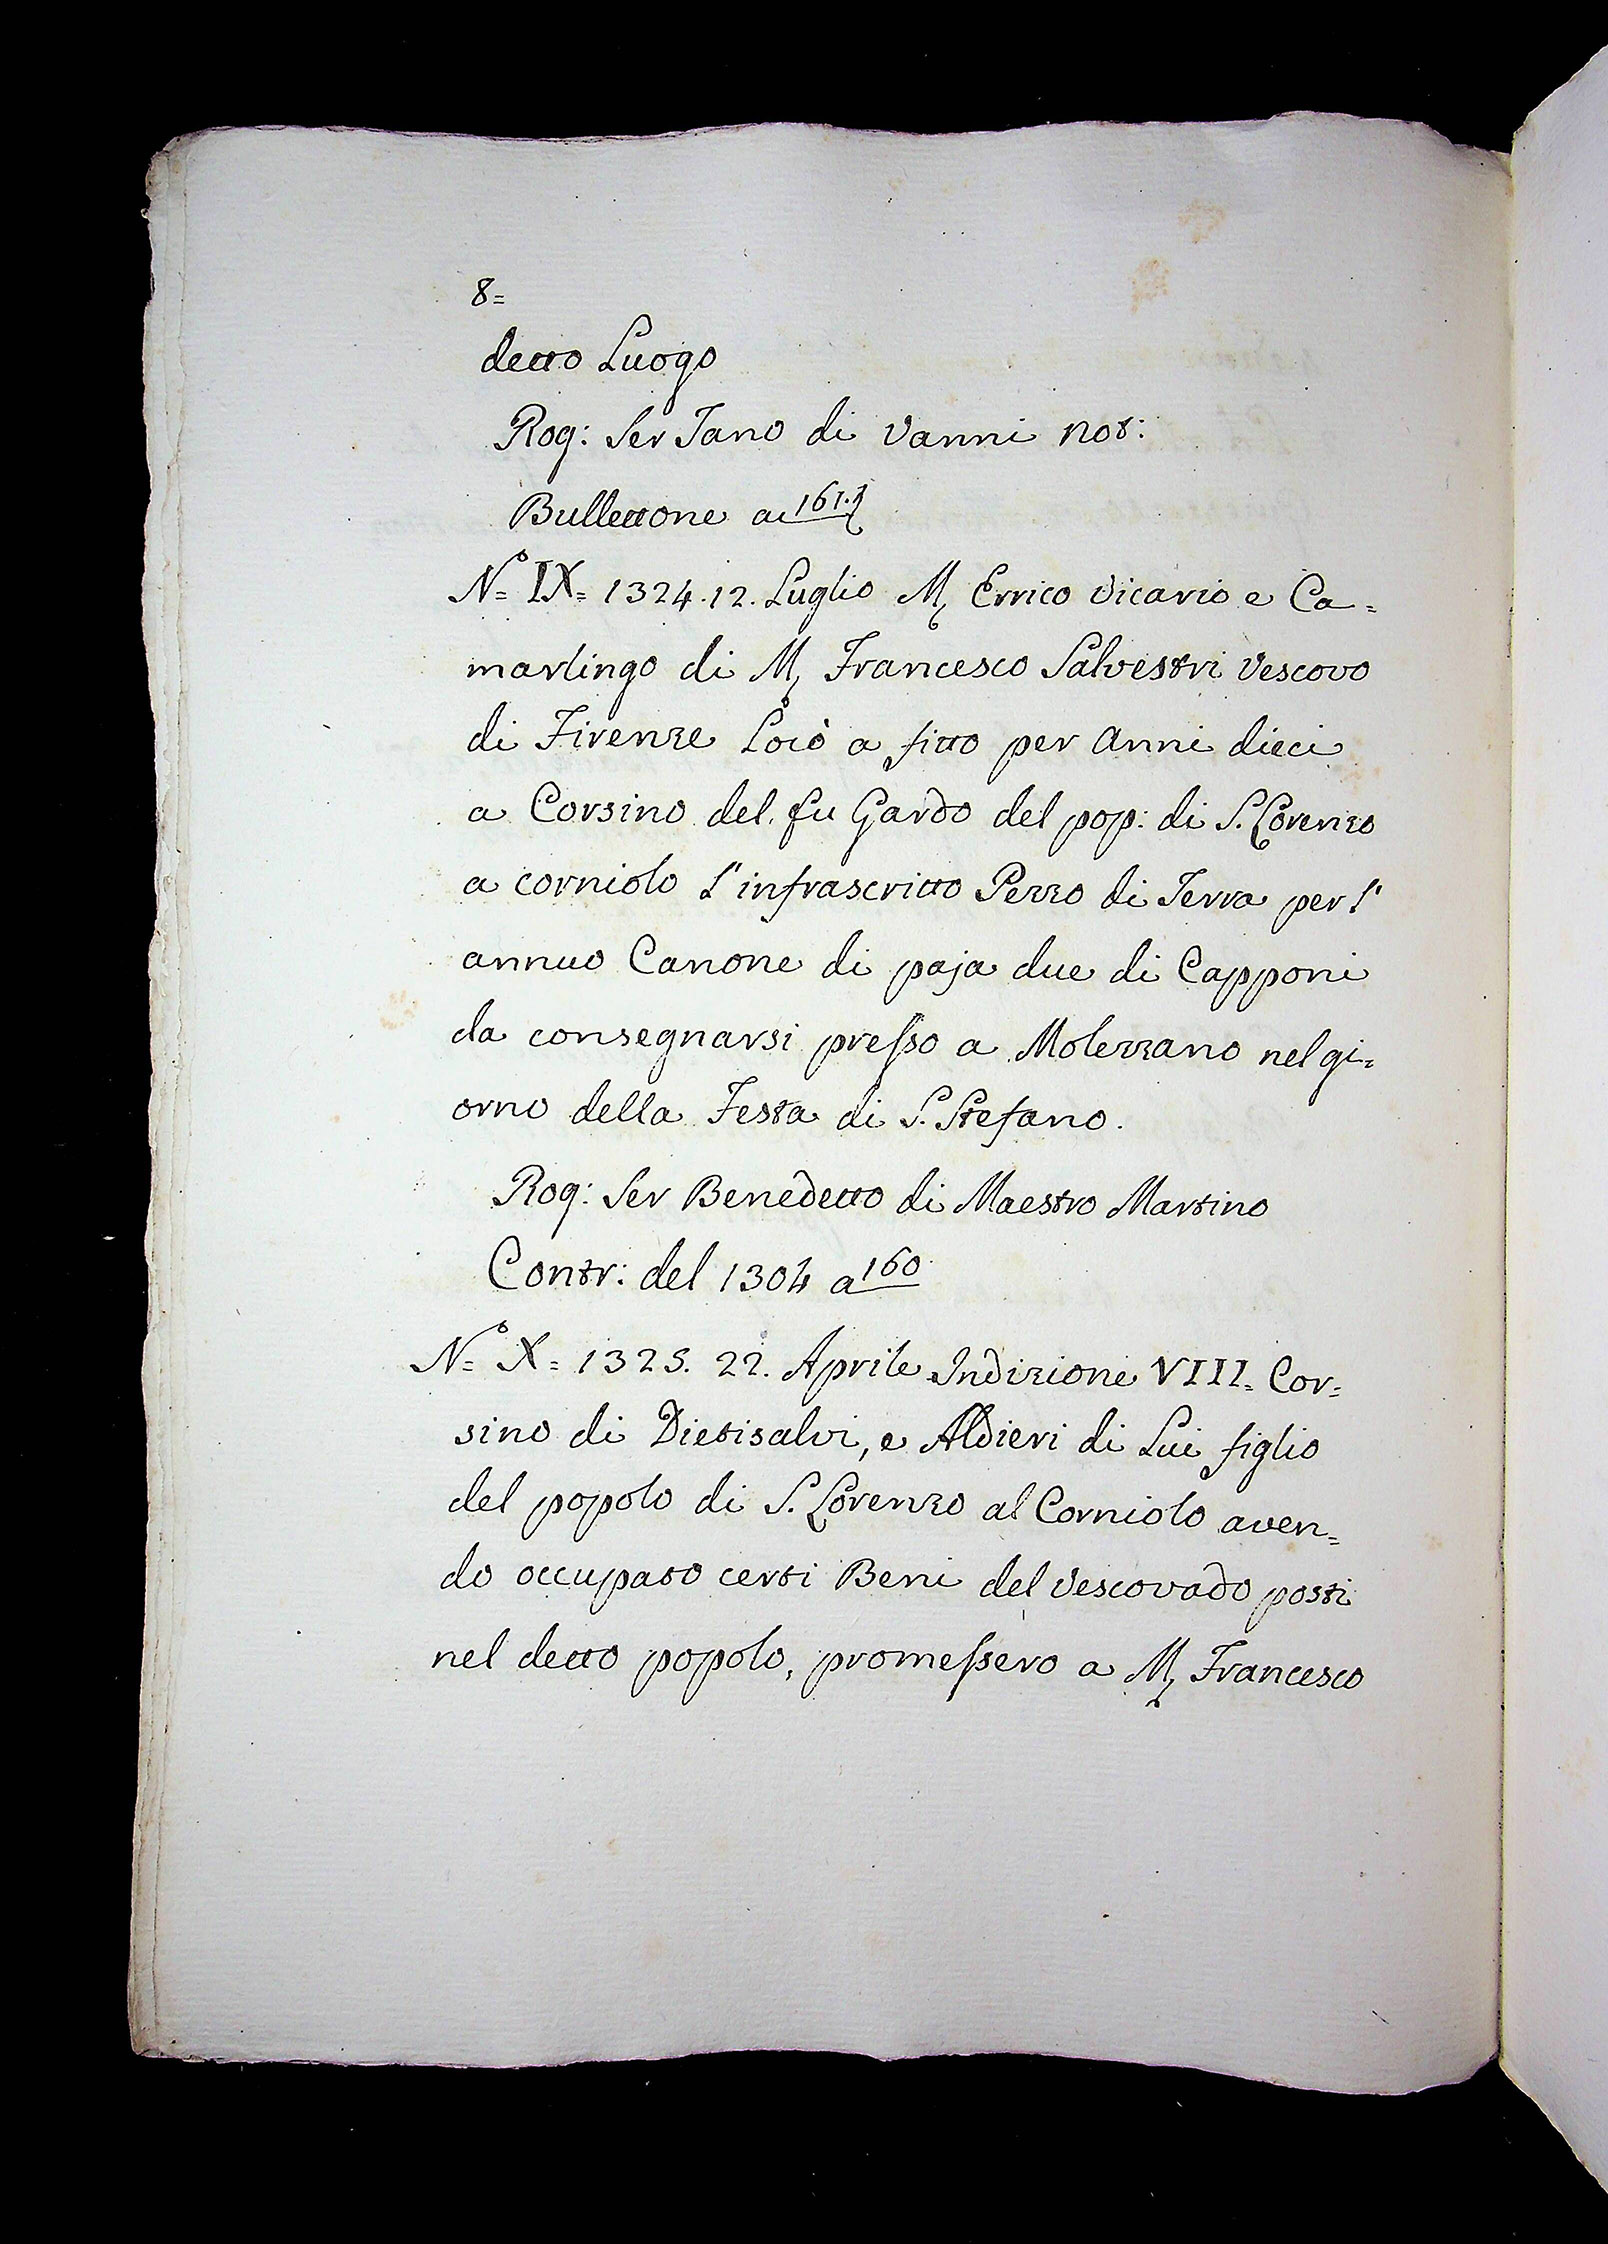 8=
detto Luogo
Rog: Ser Tano di Vanni Not:
Bullettone a 161.
N.º IX= 1324. 12. Luglio M, Errico Vicario e Ca=
marlingo di M, Francesco Salvestri Vescovo
di Firenze Locò a fitto per Anni dieci
a Corsino del fu Gardo del pop: di S. Lorenzo
a corniolo l'infrascritto Pezzo di Terra per l'
annuo Canone di paja due di Capponi
da consegnarsi presso a Molezzano nel gi=
orno della Festa di S. Stefano.
Rog: Ser Benedetto di Maestro Martino
Contr: del 1304 a 160
N.º X= 1325. 22. Aprile Indizione VIII= Cor=
sino di Dietisalvi, e Aldieri di Lui figlio
del popolo di S. Lorenzo al Corniolo aven=
do occupato certi Beni del Vescovado posti
nel detto popolo, promessero a M, Francesco